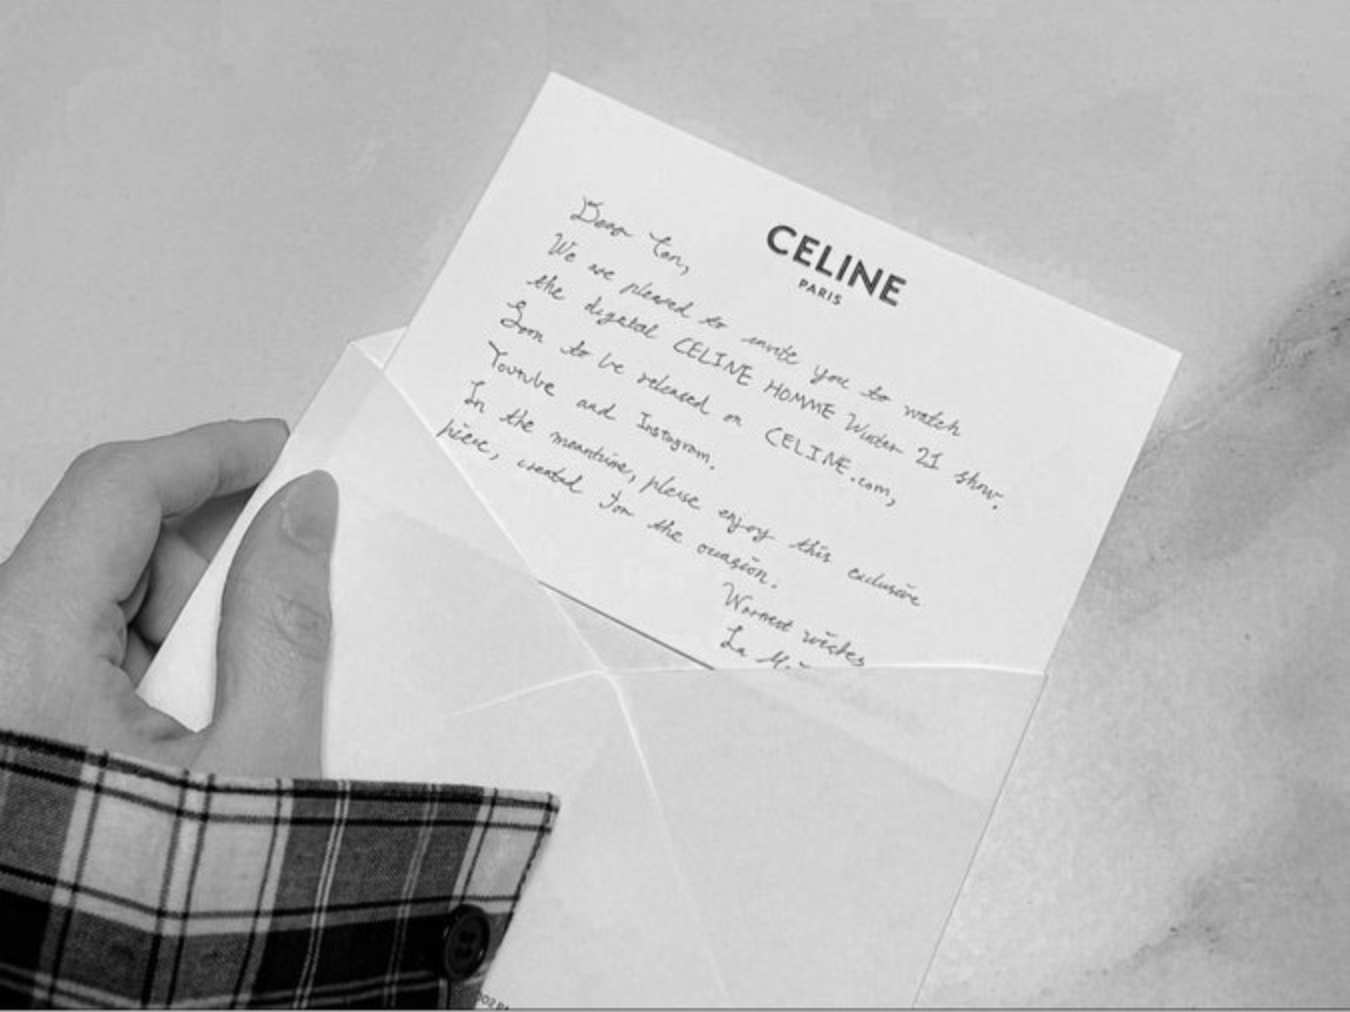 CELINE
PARIS
Dear Ton,
We are pleased to invite you to watch
the digital CELINE HOMME Winter 21 show.
Soon to be released on CELINE.com,
Youtube and Instagram.
In the meantime, please enjoy this exclusive
piece, created for the occasion.
Warmest wishes
La M